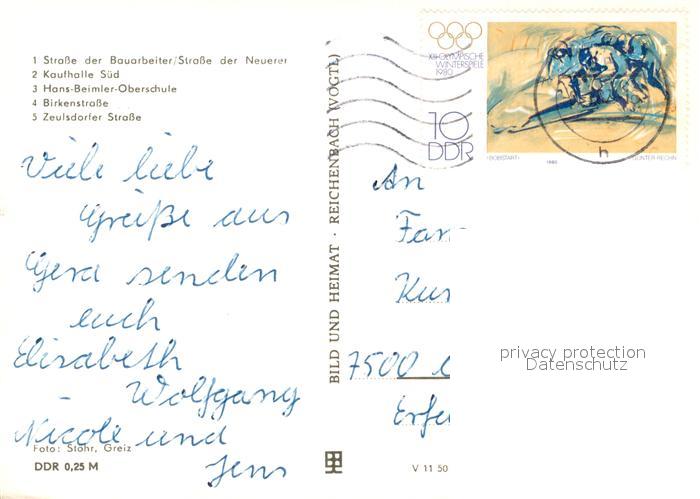 1 Straße der Bauarbeiter/Straße der Neuerer
2 Kaufhalle Süd
3 Hans-Beimler-Oberschule
4 Birkenstraße
5 Zeulsdorfer Straße
Viele liebe
Grüße aus
Gera senden
euch
Elisabeth
- Wolfgang
Nicole und
Jens
Foto: Stöhr, Greiz
DDR 0,25 M
BILD UND HEIMAT · REICHENBACH (VOGTL)
V 11 50
XIII. OLYMPISCHE
WINTERSPIELE
1980
10
DDR
›BOBSTART‹ 1980 GÜNTER RECHN
h
An
Fam
Kur
7500
privacy protection
Datenschutz